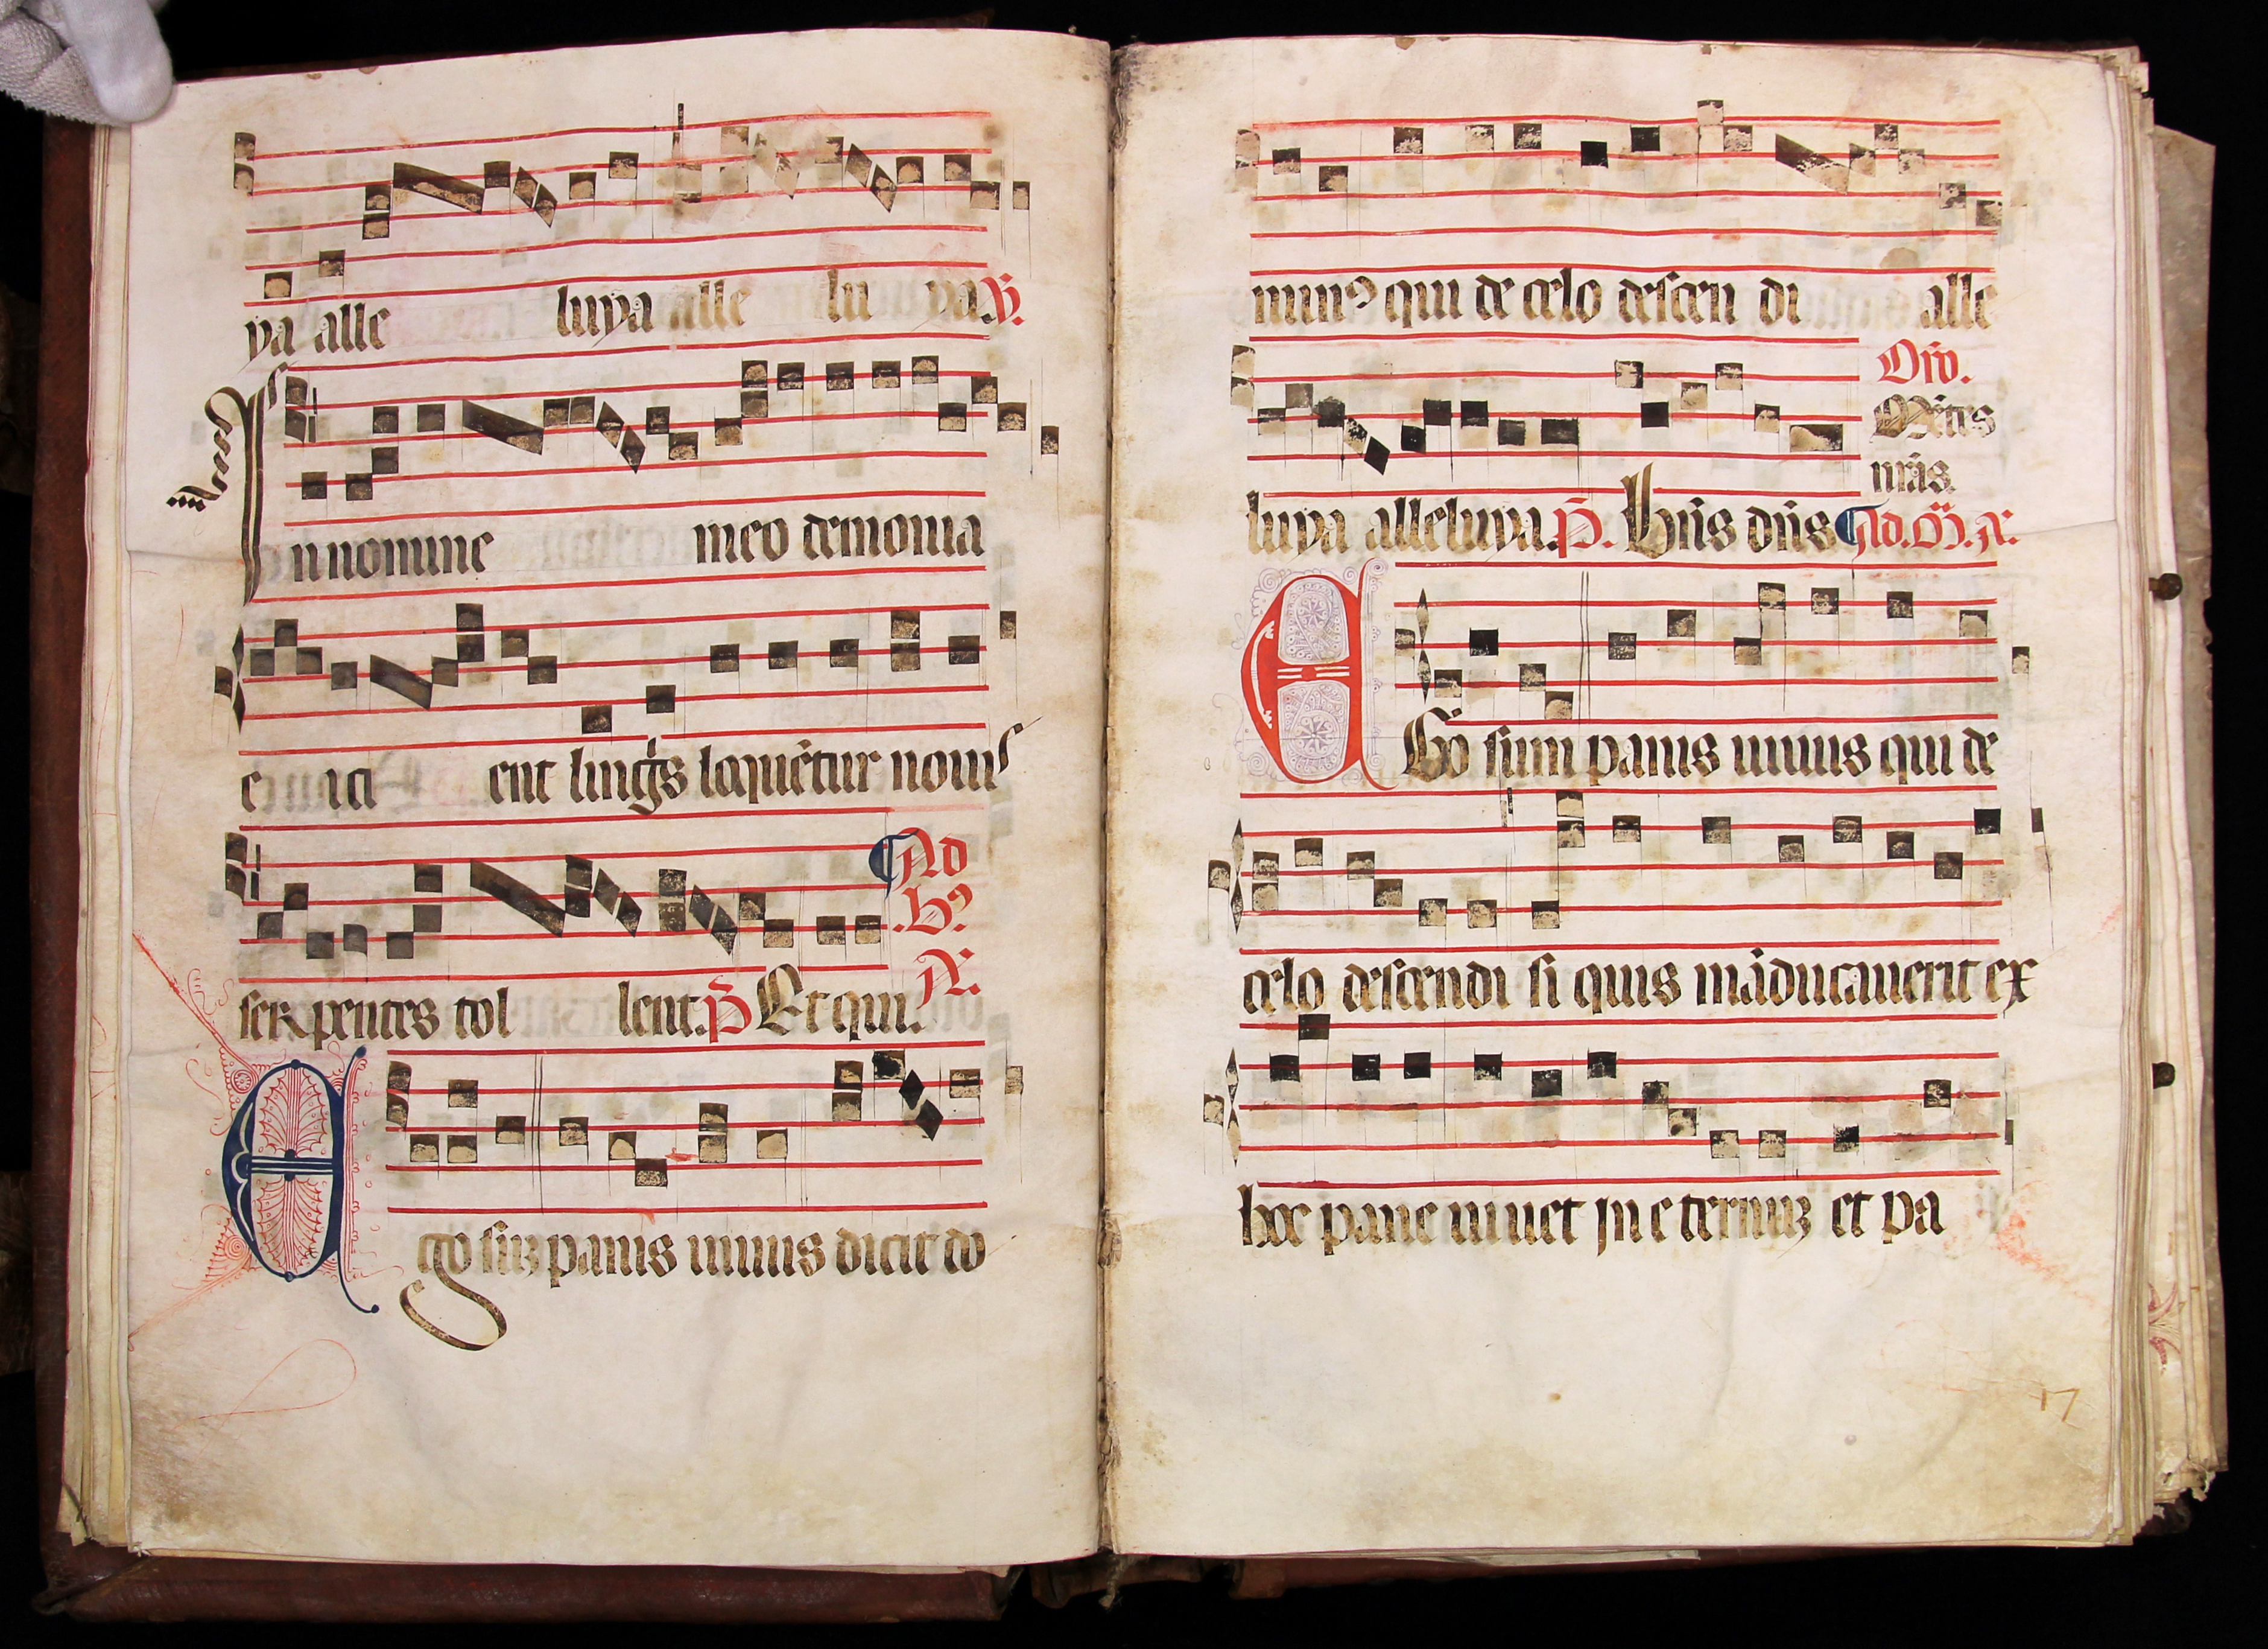 ya alle luya alle lu ya. V.
In nomine meo demonia
e ici ent lingis loquẽtur nouis
serpentes tol lent. P̃ Et qui. Ad .b9. A.
Ego suz panis uiuus dicit do
minus qui de celo descen di alle
Orõ.
Mẽtes
nr̃as.
luya alleluya. P̃. Bñs dñs Ad. M. A.
EGo sum panis uiuus qui de
celo descendi si quis mãducauerit ex
hoc pane uiuet in eternuz et pa
17